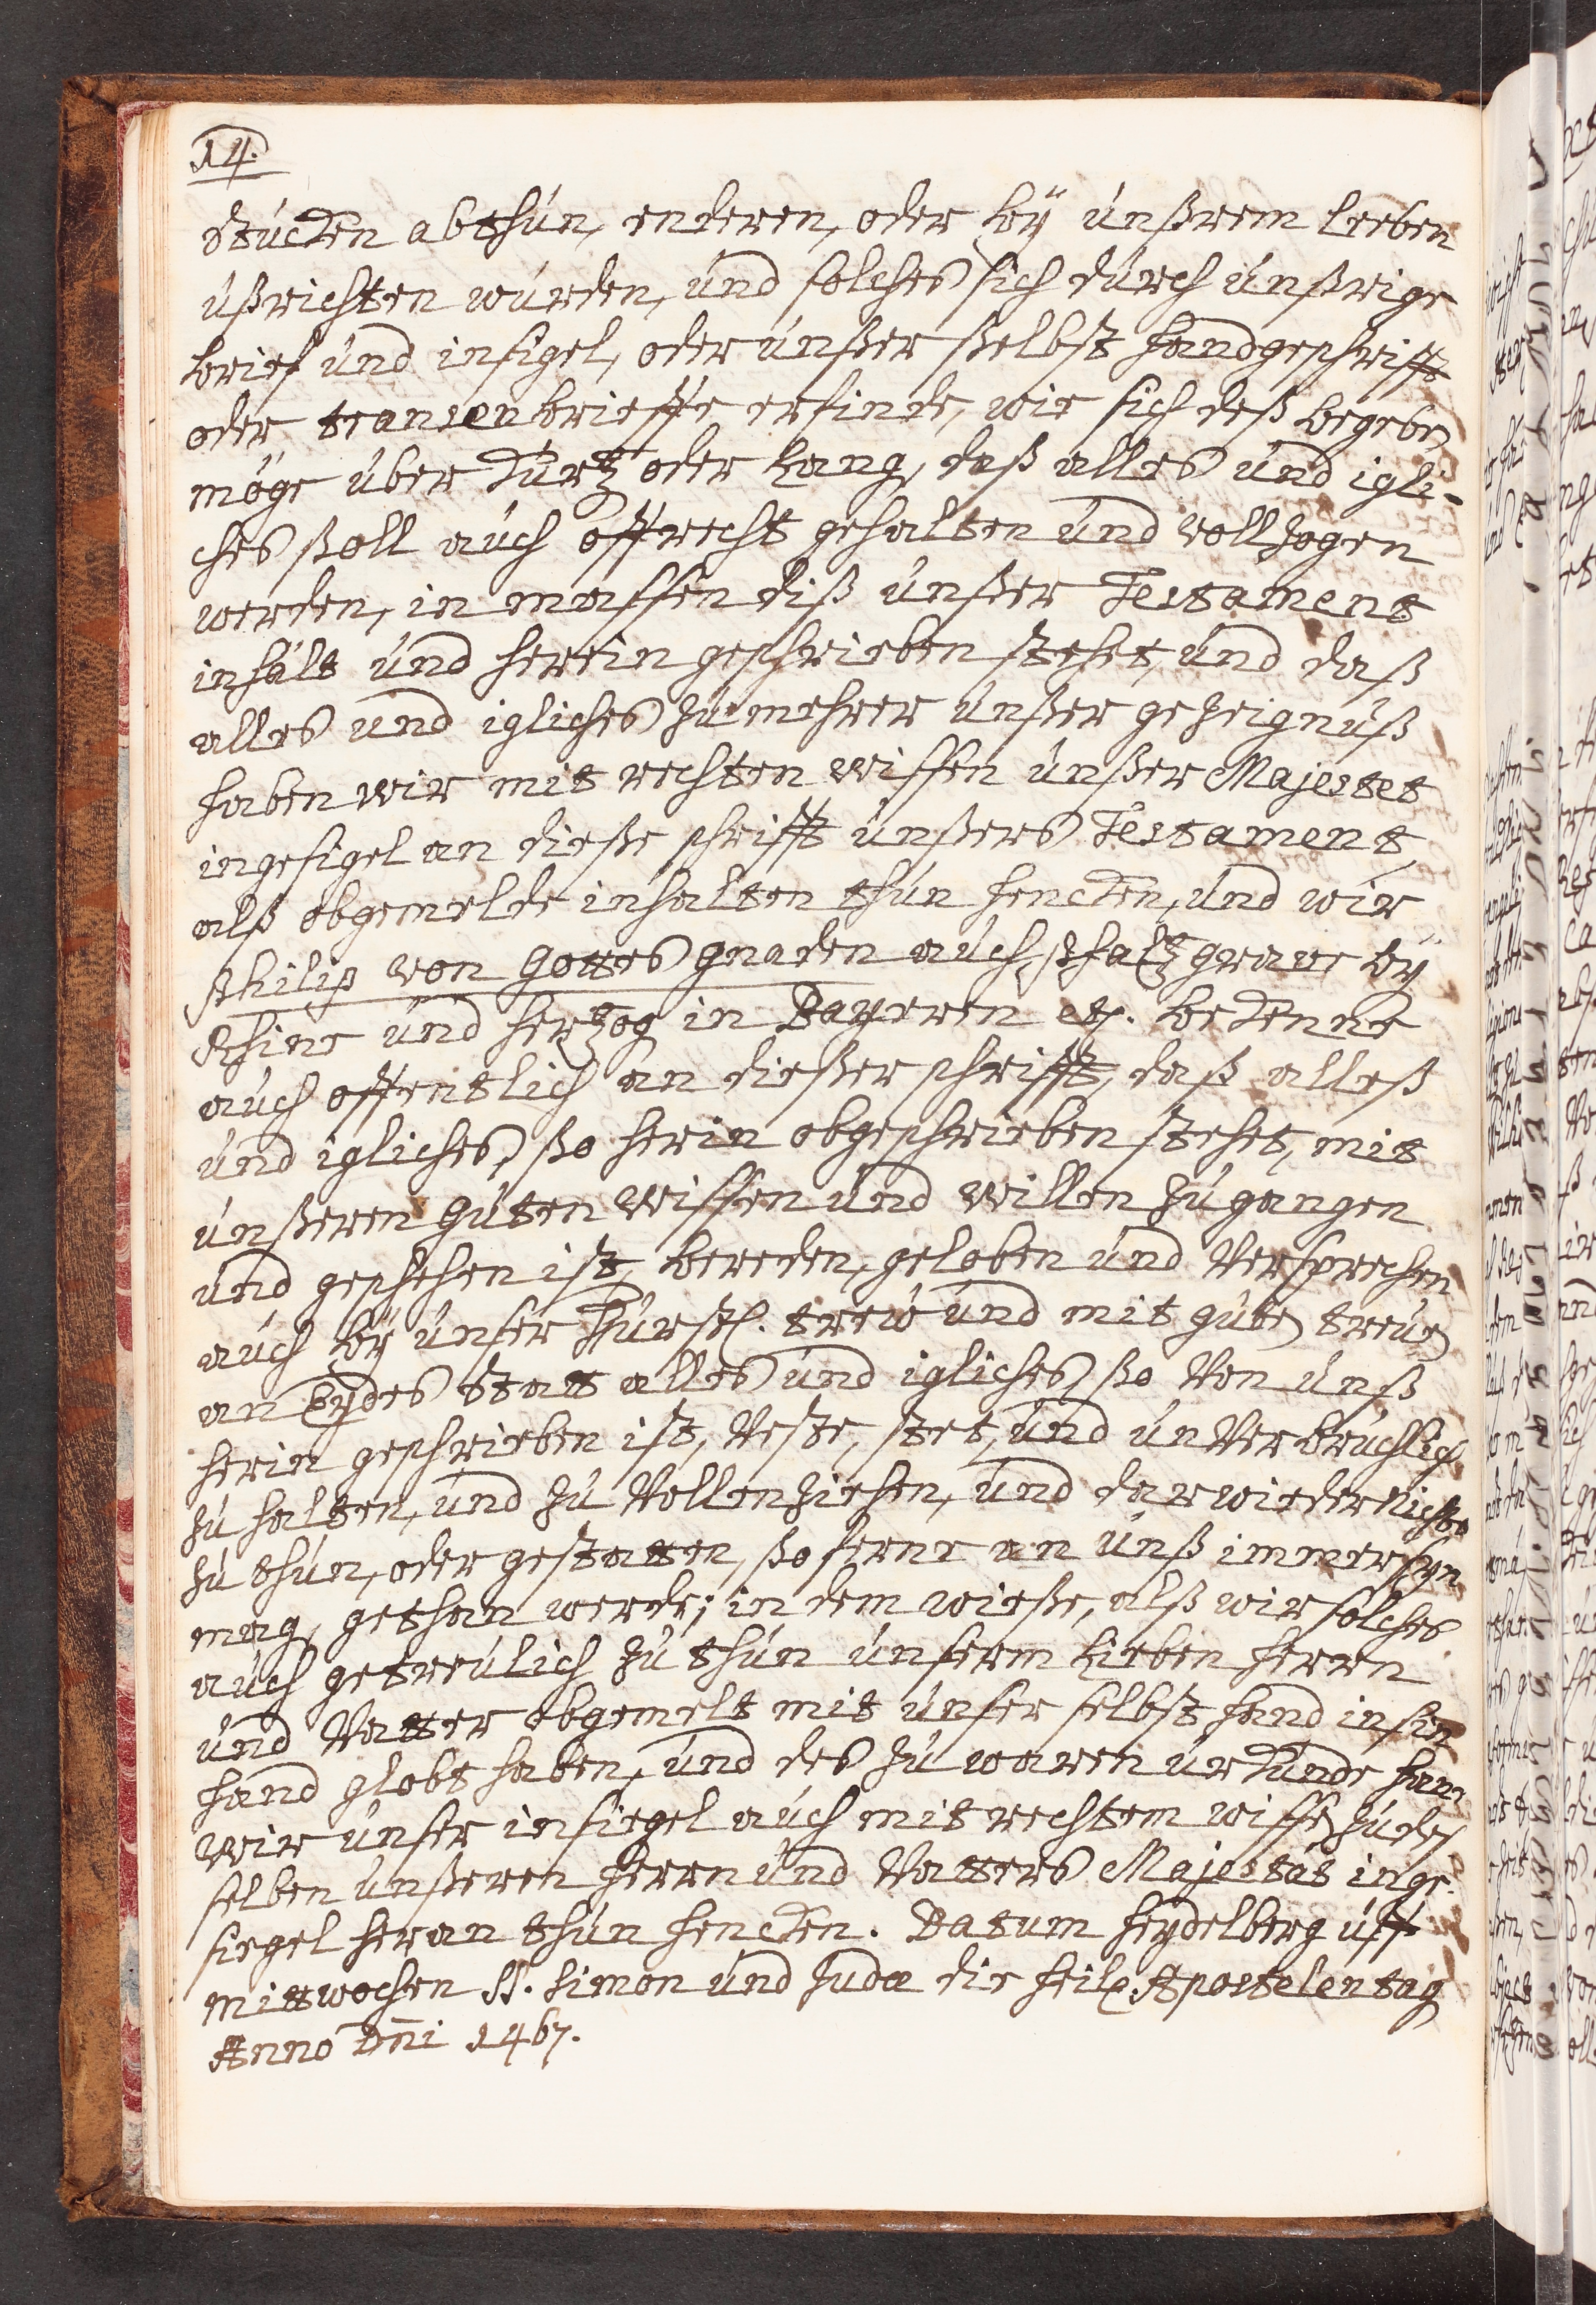 14.
stucken abthun, enderen, oder bÿ unßrem leeben
ußrichten wurden, und solches sich durch unßrige
brief und insigel, oder unßer ßelbst handgeschrifft
oder transenbrieffe erfinde, wie sich deß begeben
möge über kurtz oder Lang, daß alles und igli-
ches ßoll auch offrecht gehalten und vollzogen
werden, in massen diß unßer Testament
inhält und herein geschrieben stehet, und daß
alles und igliches zu mehrer unßer gezeignuß
haben wir mit rechten wissen unßer Majestet
ingesigel an dieße schrifft unßers Testament,
alß obgemelde inhalten thun hencken, und wir
Philips von Gottes gnaden auch Pfaltzgrave bÿ
Rhine und Hertzog in Bayeren etc. bekenne
auch offentlich an dießer schrifft, daß alleß
und igliches, ßo herin obgeschrieben stehet, mit
unßeren guten wissen und willen zugangen
und geschehen ist, bereden, geloben und Versprechen
auch bÿ unser Fürstl. treẃ und mit guten treuen
an Eydes statt alles und igliches ßo Von unß
herin geschrieben ist, Veste, stet, und unVerbruchlich
zu halten, und zu Vollenziehen, und darwieder nichts
zu thun, oder gestatten, ßo ferne an unß immer syn
mag, gethan werde; in dem wieße, alß wir solches
auch getreulich zu thun unserm Lieben Herrn
und Vatter obgemelt mit unser selbst hand in sin
hand globt haben, und des zu waren urkunde han
wir unser insiegel auch mit rechtem wissen zu des
selben unßeren Herrn und Vatters Majestät inge-
siegel heran thun hencken. Datum Heydelberg uff
mittwochen St. Simon und Judæ die heil. Apostelentag
Anno Dn̄i 1467.